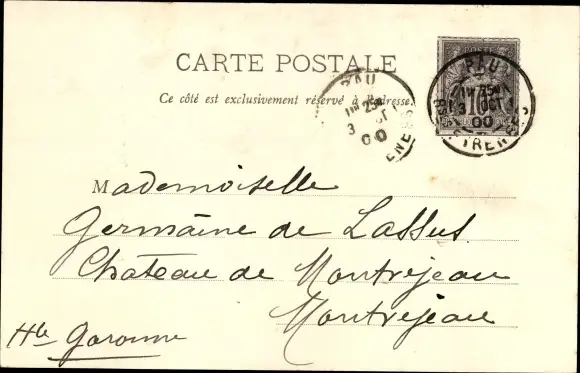 CARTE POSTALE
Ce côté est exclusivement réservé à l'adresse.
PAU
1E 25M
3 OCT
00
PAU
1E 25M
3 OCT
00
POSTE
10
Mademoiselle
Germaine de Lassus
Château de Montréjeau
Montréjeau
Hte Garonne